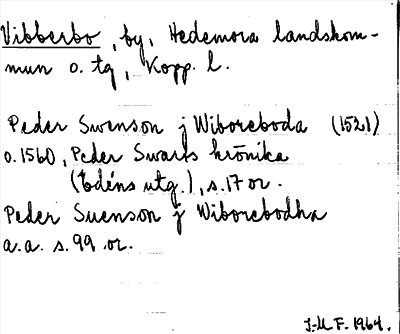 Vibberbo, by, Hedemora landskom-
mun o. tg, Kopp. l.
Peder Swenson j Wiboreboda (1521)
o. 1560, Peder Swarts krönika
(Edéns utg.), s. 17 or.
Peder Suenson j Wiborebodha
a.a. s. 99 or.
J-M F. 1964.